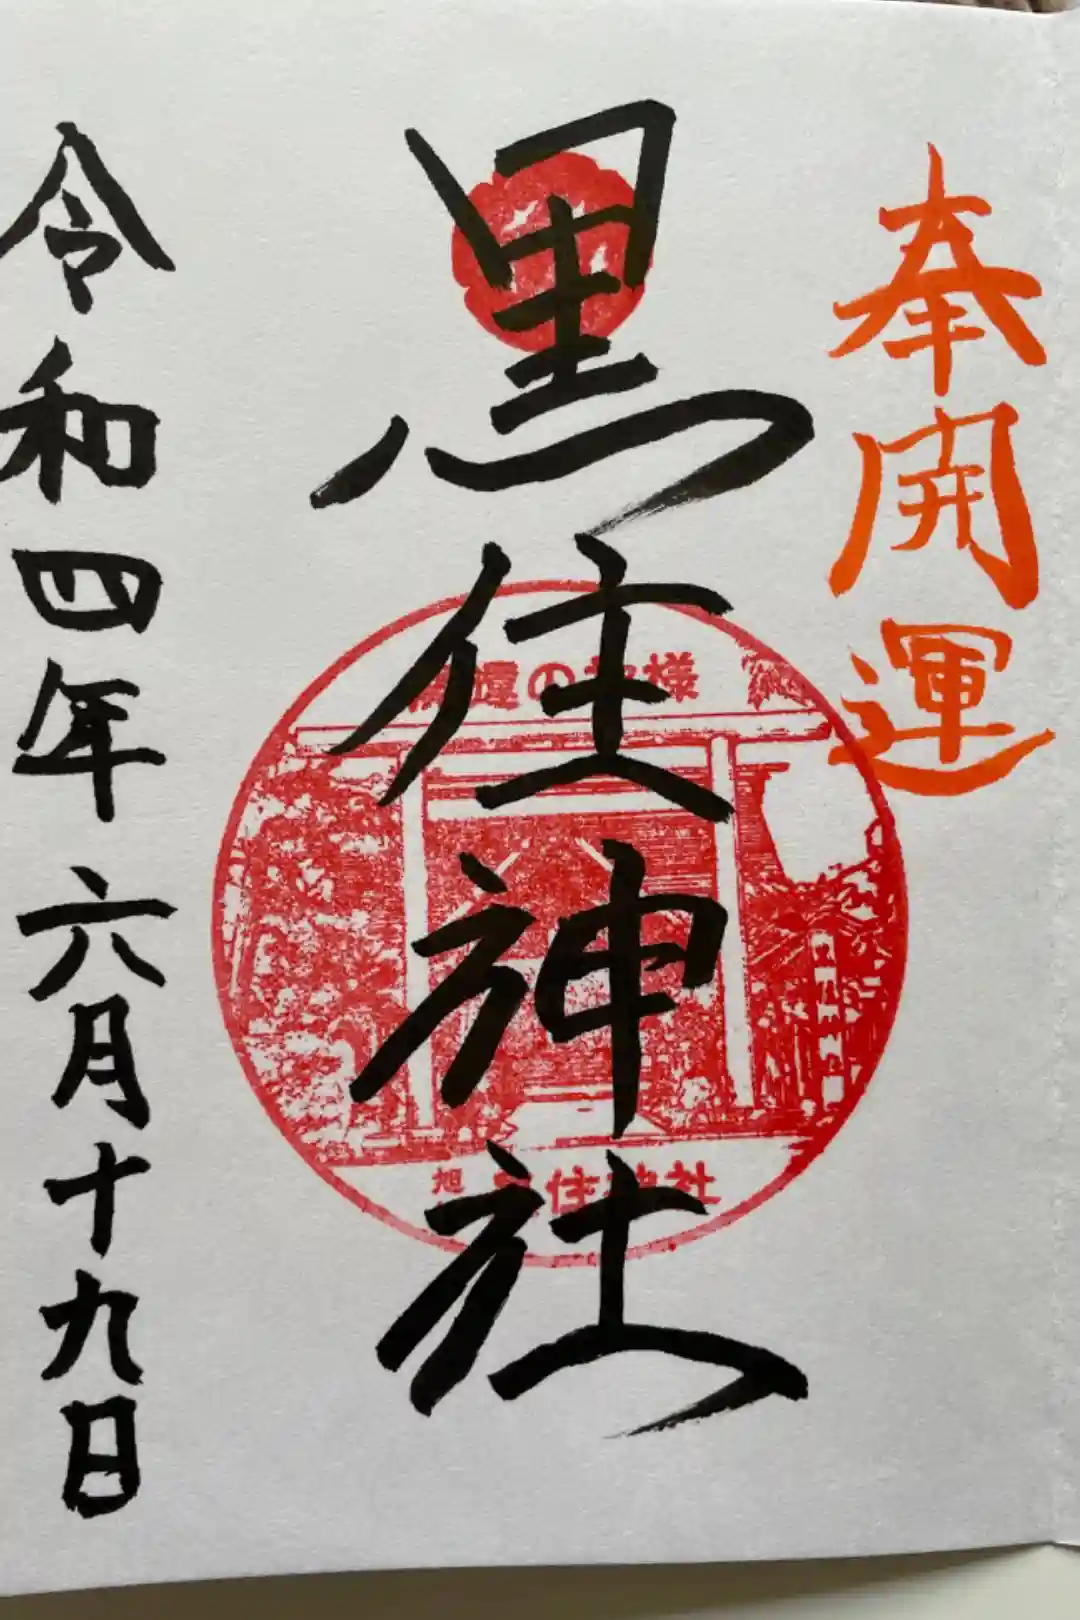 奉開運
黒住神社
令和四年六月十九日
開運の神様
旭
住神社